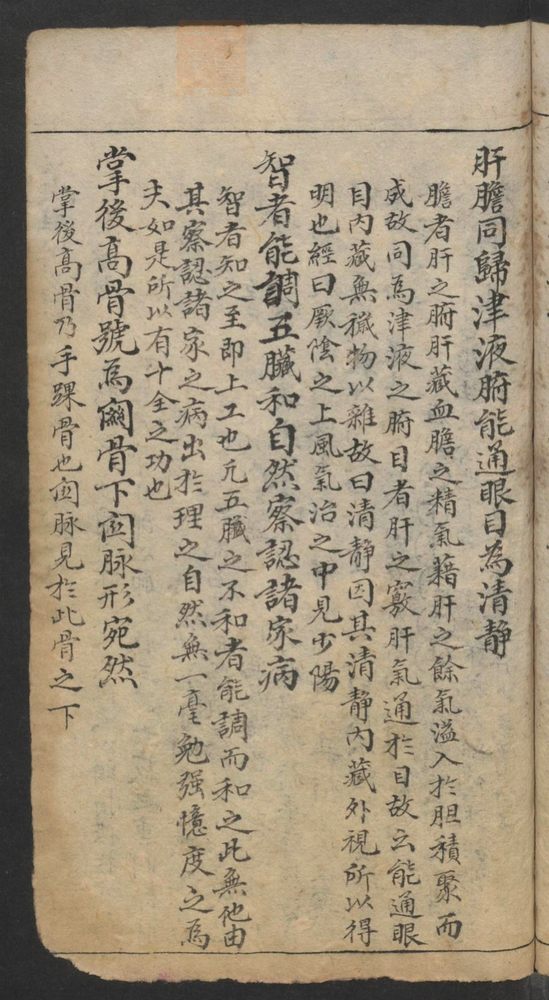 肝膽同歸津液腑能通眼目為清靜
膽者肝之腑肝藏血膽之精氣藉肝之餘氣溢入於胆積聚而
成故同為津液之腑目者肝之竅肝氣通於目故云能通眼
目內藏無穢物以雜故曰清靜因其清靜內藏外視所以得
明也經曰厥陰之上風氣治之中見少陽
智者能調五臟和自然察認諸家病
智者知之至即上工也凢五臟之不和者能調而和之此無他由
其察認諸家之病出於理之自然無一毫勉强憶度之為
夫如是所以有十全之功也
掌後高骨號為関骨下関脉形宛然
掌後高骨乃手踝骨也関脉見於此骨之下